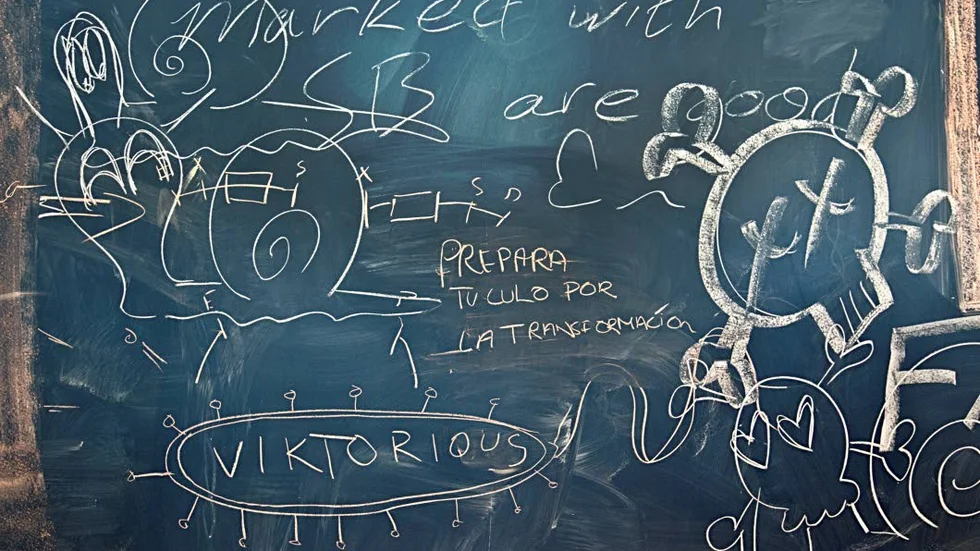 marked with
SB are good
PREPARA
TU CULO POR
LA TRANSFORMACIÓN
VIKTORIOUS